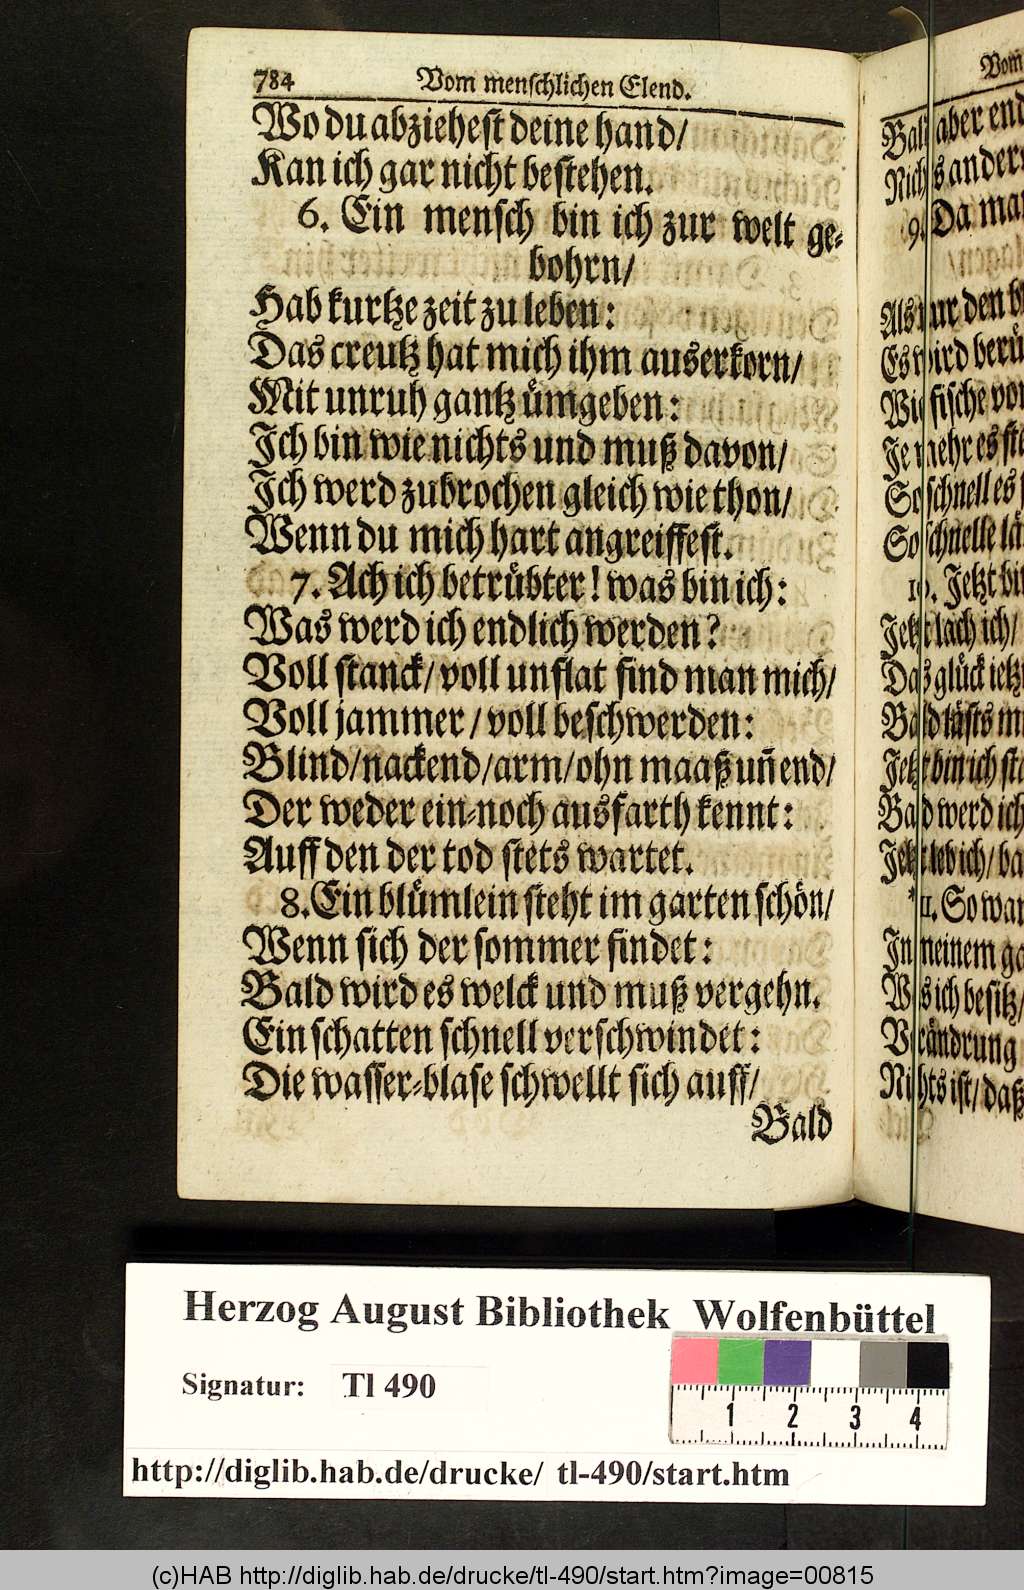 784 Vom menschlichen Elend.
Wo du abziehest deine hand/
Kan ich gar nicht bestehen.
6. Ein mensch bin ich zur welt ge-
bohrn/
Hab kurtze zeit zu leben:
Das creutz hat mich ihm auserkorn/
Mit unruh gantz ümgeben:
Ich bin wie nichts und muß davon/
Ich werd zubrochen gleich wie thon/
Wenn du mich hart angreiffest.
7. Ach ich betrübter! was bin ich:
Was werd ich endlich werden?
Voll stanck/ voll unflat find man mich/
Voll jammer/ voll beschwerden:
Blind/nackend/arm/ohn maaß uñ end/
Der weder ein-noch ausfarth kennt:
Auff den der tod stets wartet.
8. Ein blümlein steht im garten schön/
Wenn sich der sommer findet:
Bald wird es welck und muß vergehn.
Ein schatten schnell verschwindet:
Die wasser-blase schwellt sich auff/
Bald
Vom
Bald aber
Nichts
9. Da
Als nur den
Es wird
Wie fische
Je mehr es
So schnell es
So schnelle
10. Jetzt
Jetzt lach ich/
Das glück
Bald
Jetzt bin ich
Bald werd ich
Jetzt leb ich/
11. So
In meinem
Was ich besitz/
Verändrung
Nichts ist/ daß
Herzog August Bibliothek Wolfenbüttel
Signatur: Tl 490
1 2 3 4
http://diglib.hab.de/drucke/ tl-490/start.htm
(c)HAB http://diglib.hab.de/drucke/tl-490/start.htm?image=00815